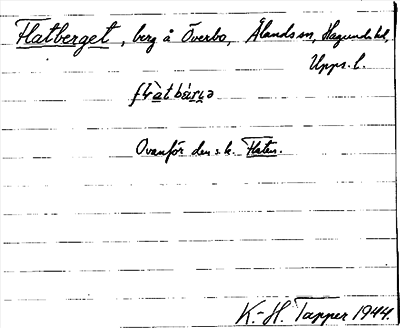 Flatberget, berg å Överbo, Ålands sn, Hagunda hd,
Upps. l.
Ovanför den s. k. Flaten.
K.-H. Tapper 1944